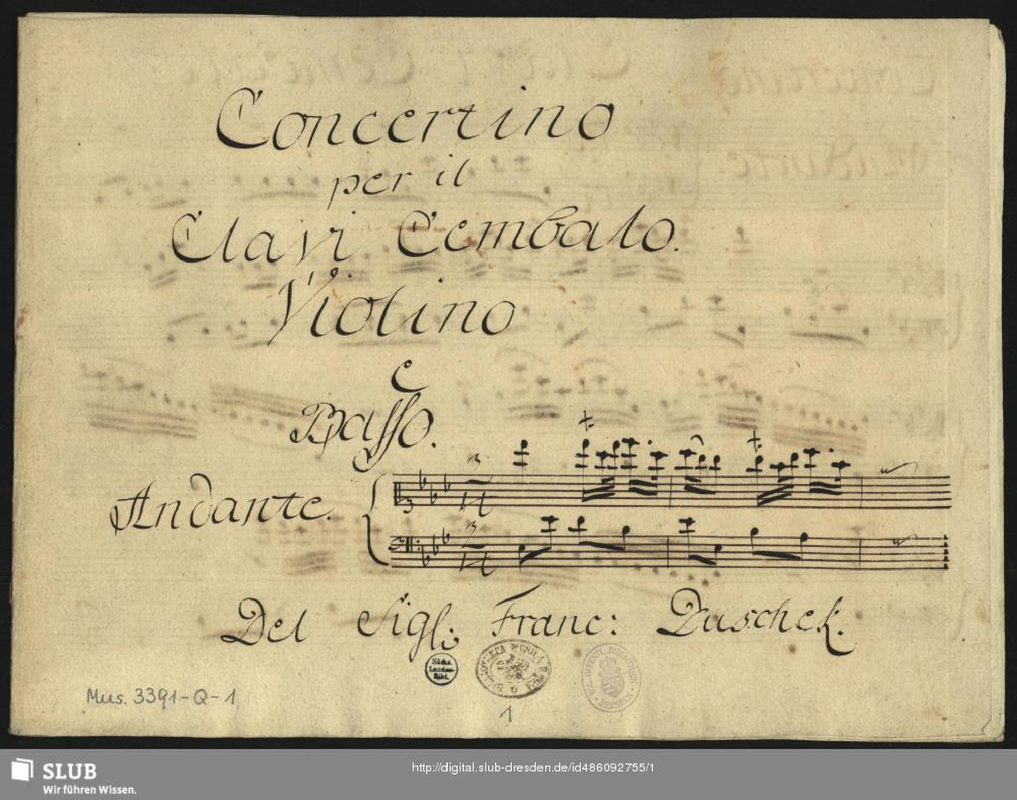 Concertino
per il
Clavi Cembalo.
Violino
e
Basso.
Andante.
Del Sigl: Franc: Duschek.
Sächs.
Landes-
Bibl.
Mus. 3391-Q-1
1
SLUB
Wir führen Wissen.
http://digital.slub-dresden.de/id486092755/1